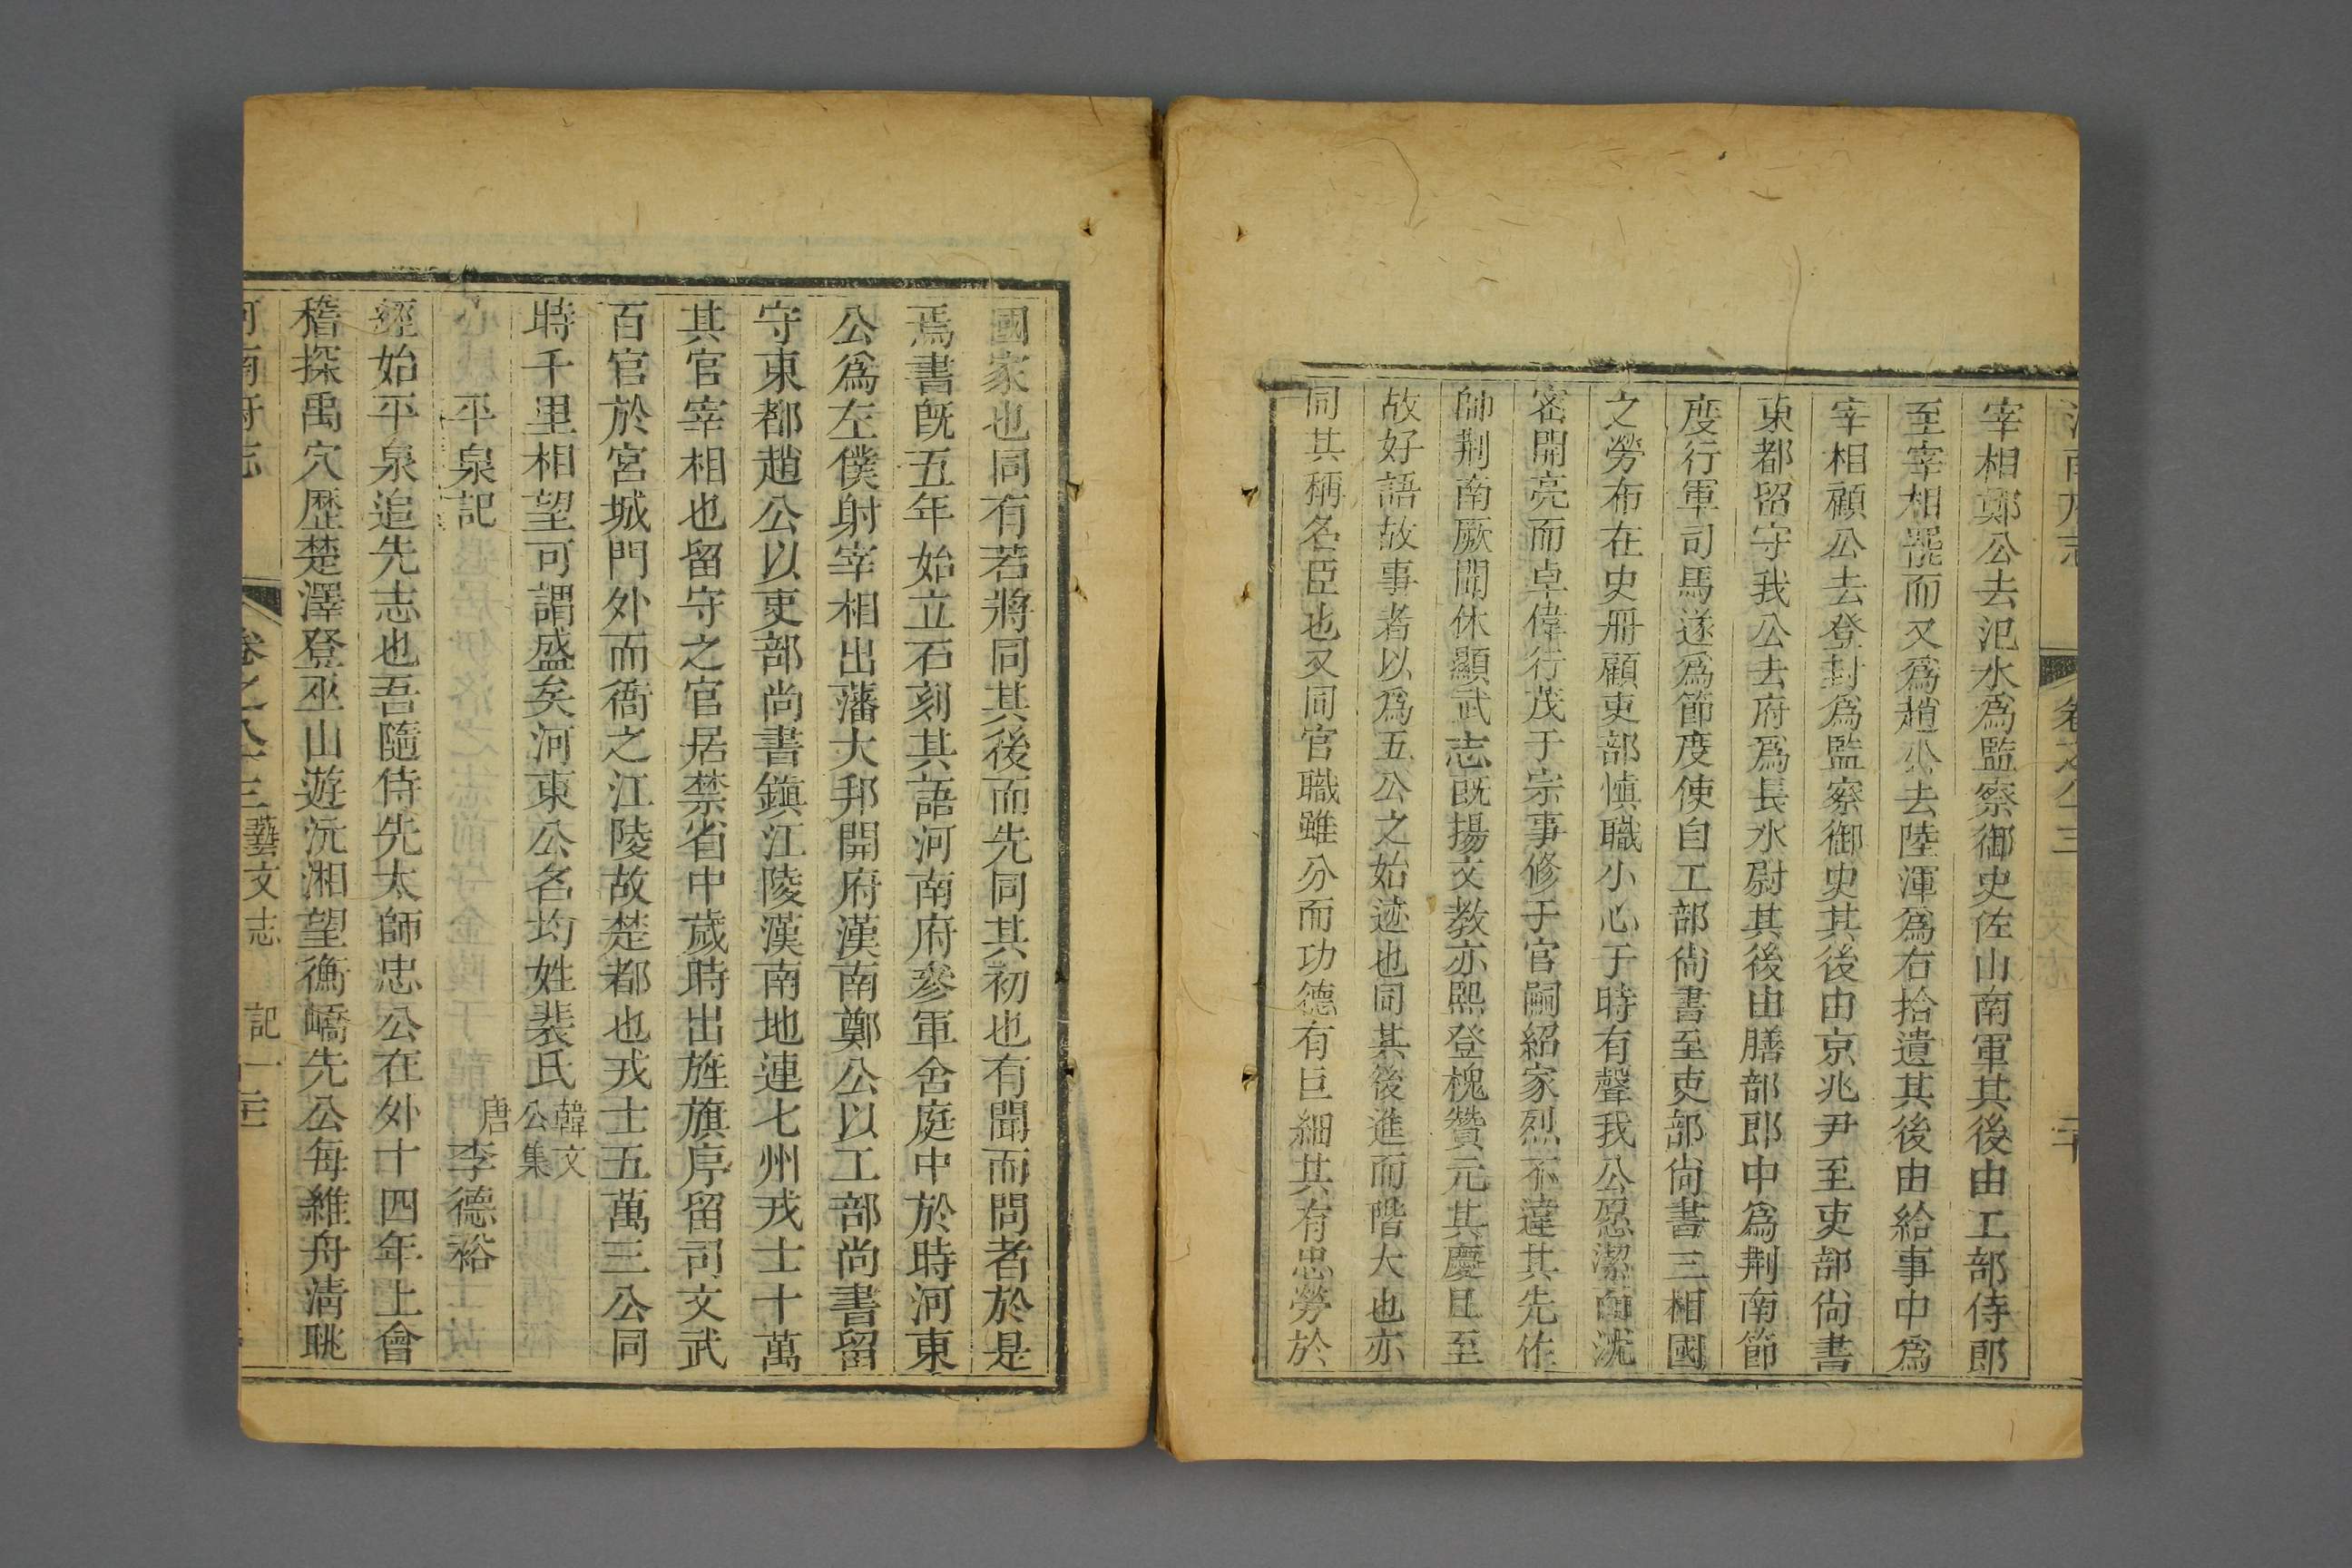 宰相鄭公去汜水爲監察御史佐山南軍其後由工部侍郎
至宰相罷而又爲趙公去陸渾爲右拾遺其後由給事中爲
宰相顧公去登封爲監察御史其後由京兆尹至吏部尙書
東都留守我公去府爲長水尉其後由膳部郎中爲荆南節
度行軍司馬遂爲節度使自工部尙書至吏部尙書三相國
之勞布在史冊顧吏部慎職小心于時有聲我公愿潔而沈
密開亮而卓偉行茂于宗事修于官嗣紹家烈不違其先作
帥荆南厥聞休顯武志旣揚文教亦熙登槐贊元其慶且至
故好語故事者以爲五公之始迹也同其後進而階大也亦
同其稱名臣也又同官職雖分而功德有巨細其有忠勞於
國家也同有若將同其後而先同其初也有聞而問者於是
焉書旣五年始立石刻其語河南府參軍舍庭中於時河東
公爲左僕射宰相出藩大邦開府漢南鄭公以工部尚書留
守東都趙公以吏部尚書鎭江陵漢南地連七州戎士十萬
其官宰相也留守之官居禁省中歲時出旌旗序留司文武
百官於宮城門外而衙之江陵故楚都也戎士五萬三公同
時千里相望可謂盛矣河東公名均姓裴氏韓文公集
平泉記 唐李德裕
經始平泉追先志也吾隨侍先太師忠公在外十四年上會
稽探禹穴歷楚澤登巫山遊沅湘望衡嶠先公每維舟清眺
河南府志 卷之八十三藝文志 記一